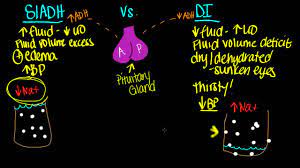 SIADH
↑ADH
↑fluid - ↓UO
Fluid volume excess
edema
↑BP
↓Na+
Vs.
A P
Pituitary
Gland
DI
↓ADH
↓fluid - ↑UO
Fluid volume deficit
dry/dehydrated
-sunken eyes
Thirsty!
↓BP
↑Na+